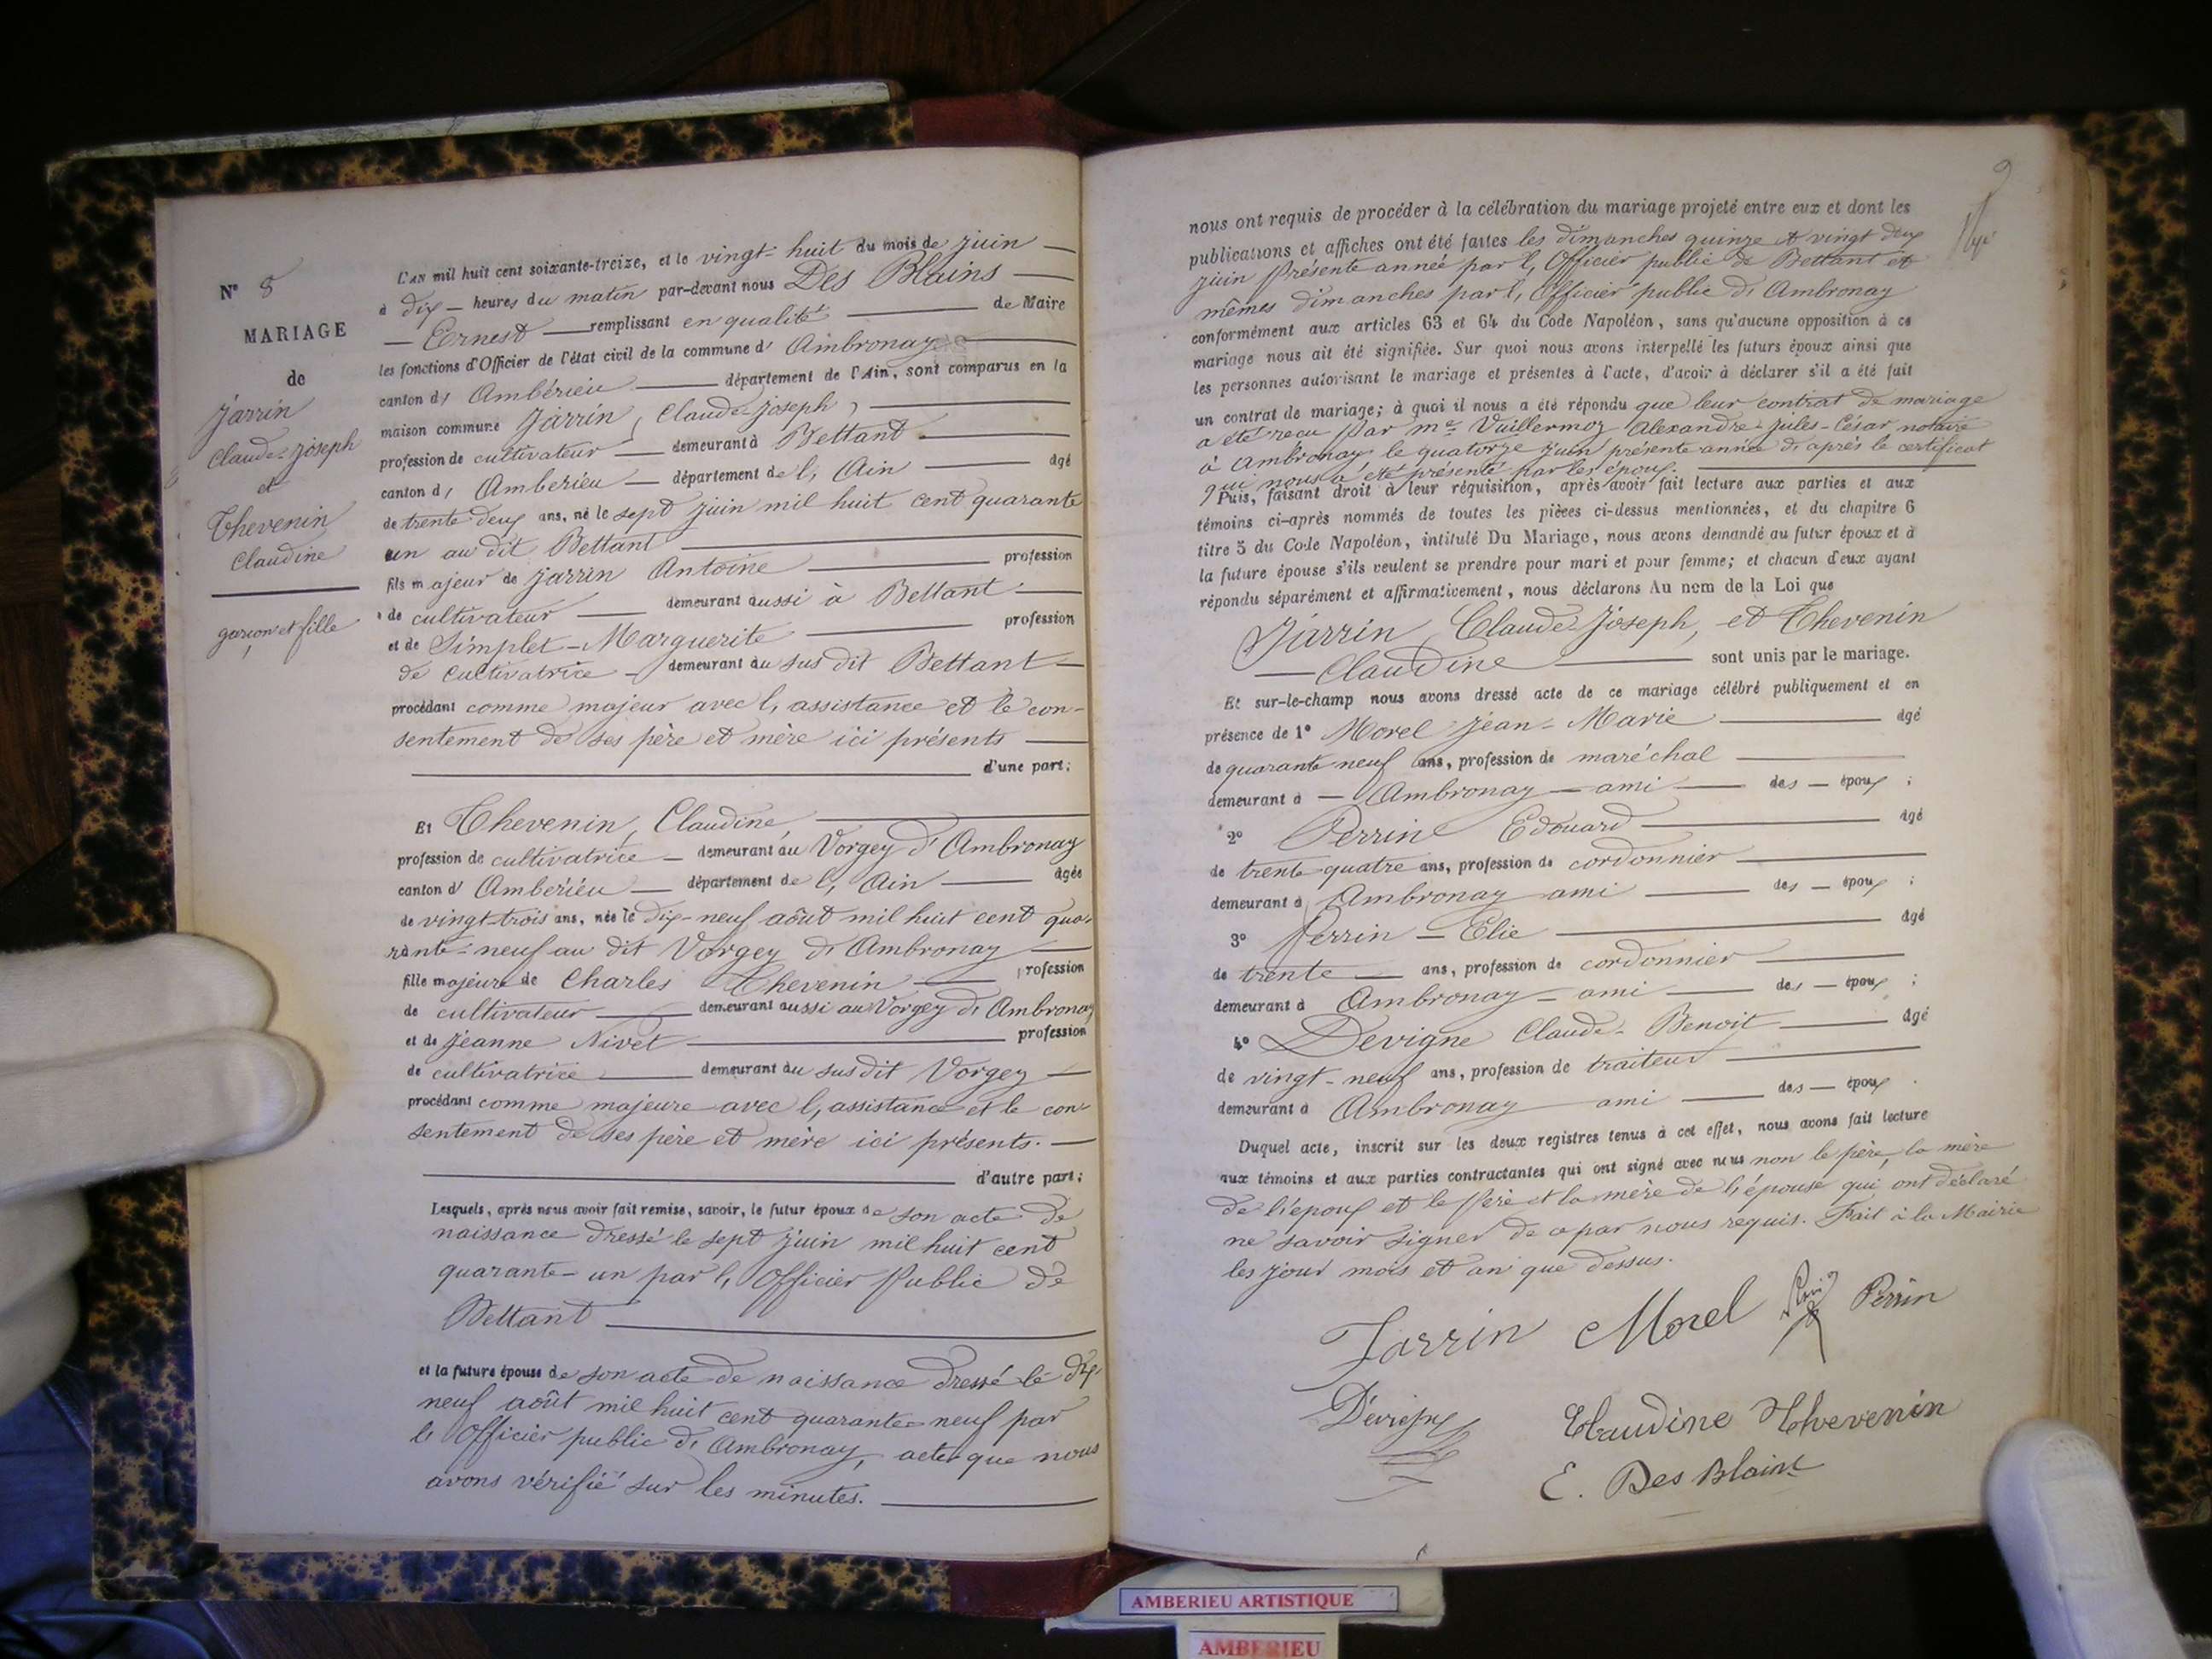 N° 8
MARIAGE
de
Jarrin
Claude-Joseph
et
Thevenin
Claudine
garçon et fille
L'AN mil huit cent soixante-treize, et le vingt-huit du mois de juin
à dix heures du matin par-devant nous Des Blains
Ernest remplissant en qualité de Maire
les fonctions d'Officier de l'état civil de la commune d' Ambronay
canton d' Ambérieu département de l'Ain, sont comparus en la
maison commune Jarrin, Claude-Joseph,
profession de cultivateur demeurant à Bettant
canton d' Ambérieu département de l'Ain âgé
de trente deux ans, né le sept juin mil huit cent quarante
un au dit Bettant
fils majeur de Jarrin Antoine profession
de cultivateur demeurant aussi à Bettant
et de Simplet-Marguerite profession
de cultivatrice demeurant au sus dit Bettant
procédant comme majeur avec l'assistance et le con-
sentement de ses père et mère ici présents
d'une part;
Et Thevenin, Claudine,
profession de cultivatrice demeurant au Vorgey d'Ambronay
canton d' Ambérieu département de l'Ain âgée
de vingt-trois ans, née le dix-neuf août mil huit cent qua-
rante-neuf au dit Vorgey d'Ambronay
fille majeure de Charles Thevenin profession
de cultivateur demeurant aussi au Vorgey d'Ambronay
et de Jeanne Nivet profession
de cultivatrice demeurant au susdit Vorgey
procédant comme majeure avec l'assistance et le con-
sentement de ses père et mère ici présents.
d'autre part;
Lesquels, après nous avoir fait remise, savoir, le futur époux de son acte de
naissance dressé le sept juin mil huit cent
quarante-un par l'Officier Public de
Bettant
et la future épouse de son acte de naissance dressé le dix-
neuf août mil huit cent quarante-neuf par
l'Officier public d'Ambronay, actes que nous
avons vérifié sur les minutes.
9
nous ont requis de procéder à la célébration du mariage projeté entre eux et dont les
publications et affiches ont été faites les dimanches quinze et vingt deux
juin présente année par l'Officier public de Bettant et
mêmes dimanches par l'Officier public d'Ambronay
conformément aux articles 63 et 64 du Code Napoléon, sans qu'aucune opposition à ce
mariage nous ait été signifiée. Sur quoi nous avons interpellé les futurs époux ainsi que
les personnes autorisant le mariage et présentes à l'acte, d'avoir à déclarer s'il a été fait
un contrat de mariage; à quoi il nous a été répondu que leur contrat de mariage
a été reçu par me Vuillermoz Alexandre-Jules-César notaire
à Ambronay le quatorze juin présente année d'après le certificat
qui nous a été présenté par les époux.
Puis, faisant droit à leur réquisition, après avoir fait lecture aux parties et aux
témoins ci-après nommés de toutes les pièces ci-dessus mentionnées, et du chapitre 6
titre 5 du Code Napoléon, intitulé Du Mariage, nous avons demandé au futur époux et à
la future épouse s'ils veulent se prendre pour mari et pour femme; et chacun d'eux ayant
répondu séparément et affirmativement, nous déclarons Au nom de la Loi que
Jarrin, Claude-Joseph, et Thevenin
Claudine sont unis par le mariage.
Et sur-le-champ nous avons dressé acte de ce mariage célébré publiquement et en
présence de 1° Morel Jean-Marie âgé
de quarante neuf ans, profession de maréchal
demeurant à Ambronay ami des époux;
2° Perrin Edouard âgé
de trente quatre ans, profession de cordonnier
demeurant à Ambronay ami des époux;
3° Perrin Elie âgé
de trente ans, profession de cordonnier
demeurant à Ambronay ami des époux;
4° Devigne Claude-Benoit âgé
de vingt-neuf ans, profession de traiteur
demeurant à Ambronay ami des époux.
Duquel acte, inscrit sur les deux registres tenus à cet effet, nous avons fait lecture
aux témoins et aux parties contractantes qui ont signé avec nous non le père, la mère
de l'époux et le père et la mère de l'épouse qui ont déclaré
ne savoir signer de a par nous requis. Fait à la Mairie
les jour mois et an que dessus.
Jarrin Morel Perrin
Devigne Claudine Thevenin
E. Des Blains
AMBERIEU ARTISTIQUE
AMBERIEU